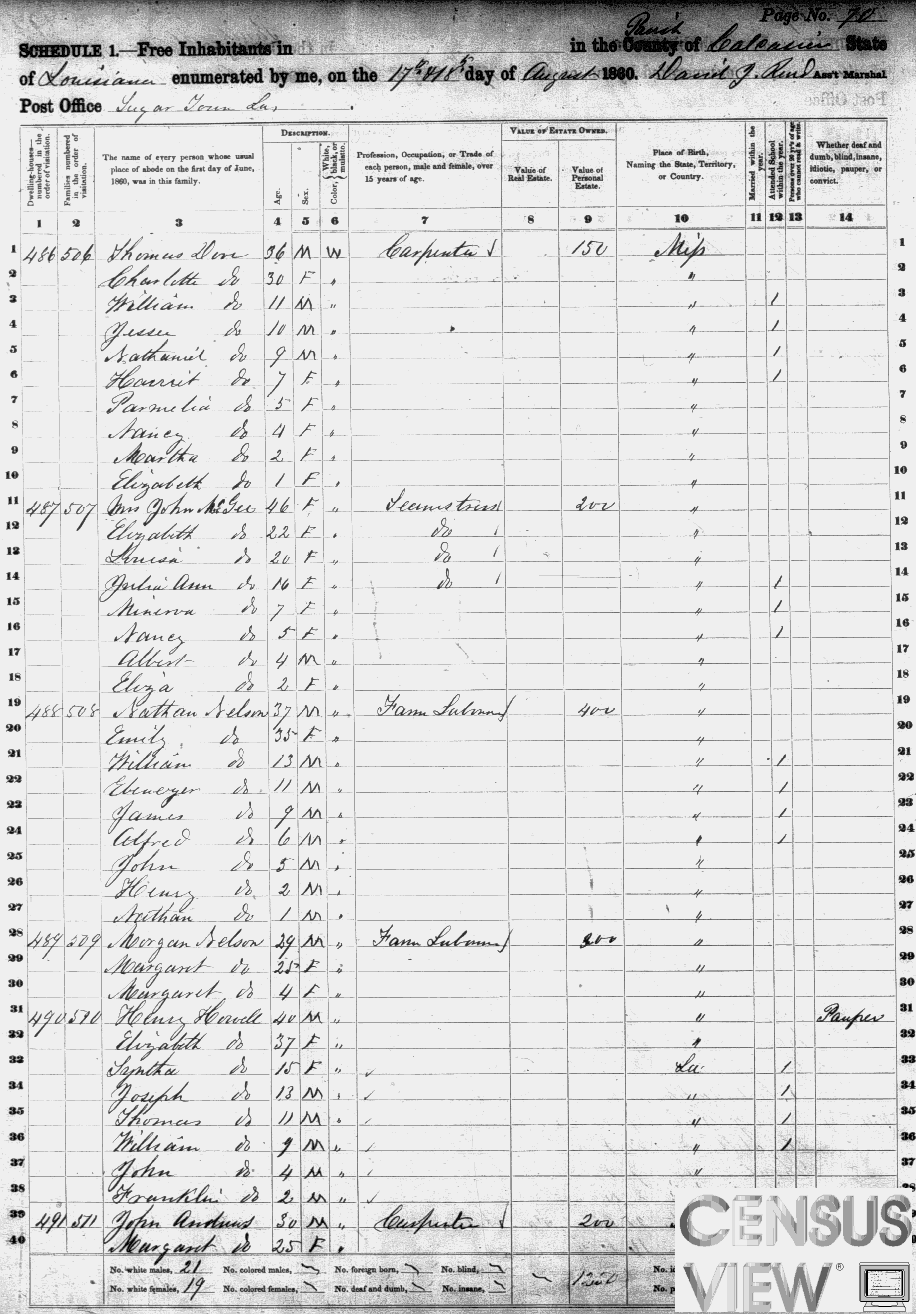 Page No. 70
SCHEDULE 1.—Free Inhabitants in in the County Parish of Calcasieu State
of Louisiana enumerated by me, on the 17th & 18th day of August 1860. David J. Reid Ass't Marshal
Post Office Sugar Town La.
Dwelling-houses—numbered in the order of visitation.
Families numbered in the order of visitation.
The name of every person whose usual place of abode on the first day of June, 1860, was in this family.
DESCRIPTION.
Age.
Sex.
Color, { White, black, or mulatto.
Profession, Occupation, or Trade of each person, male and female, over 15 years of age.
VALUE OF ESTATE OWNED.
Value of Real Estate.
Value of Personal Estate.
Place of Birth, Naming the State, Territory, or Country.
Married within the year.
Attended School within the year.
Persons over 20 y'rs of age who cannot read & write.
Whether deaf and dumb, blind, insane, idiotic, pauper, or convict.
1 2 3 4 5 6 7 8 9 10 11 12 13 14
1 486 506 Thomas Dove 36 M W Carpenter 150 Miss 1
2 Charlotte do 30 F " " 2
3 William do 11 M " " / 3
4 Jesse do 10 M " " / 4
5 Nathaniel do 9 M " " / 5
6 Harriet do 7 F " " / 6
7 Parmelia do 5 F " " 7
8 Nancy do 4 F " " 8
9 Martha do 2 F " " 9
10 Elizabeth do 1 F " " 10
11 487 507 Mrs John McGee 46 F " Seamstress 200 " 11
12 Elizabeth do 22 F " do " 12
13 Louisa do 20 F " do " 13
14 Julia Ann do 16 F " do " / 14
15 Minerva do 7 F " " / 15
16 Nancy do 5 F " " / 16
17 Albert do 4 M " " 17
18 Eliza do 2 F " " 18
19 488 508 Nathan Nelson 37 M " Farm Labourer 400 " 19
20 Emily do 35 F " " 20
21 William do 13 M " " / 21
22 Ebenezer do 11 M " " / 22
23 James do 9 M " " / 23
24 Alfred do 6 M " " / 24
25 John do 5 M " " 25
26 Henry do 2 M " " 26
27 Nathan do 1 M " " 27
28 489 509 Morgan Nelson 29 M " Farm Labourer 300 " 28
29 Margaret do 25 F " " 29
30 Margaret do 4 F " " 30
31 490 510 Henry Howell 40 M " " Pauper 31
32 Elizabeth do 37 F " " 32
33 Syntha do 15 F " La. / 33
34 Joseph do 13 M " " / 34
35 Thomas do 11 M " " / 35
36 William do 9 M " " / 36
37 John do 4 M " " 37
38 Franklin do 2 M " 38
39 491 511 John Andrews 30 M " Carpenter 200
40 Margaret do 25 F "
No. white males, 21 No. colored males, No. foreign born, No. blind,
No. white females, 19 No. colored females, No. deaf and dumb, No. insane, 1250
CENSUS
VIEW®